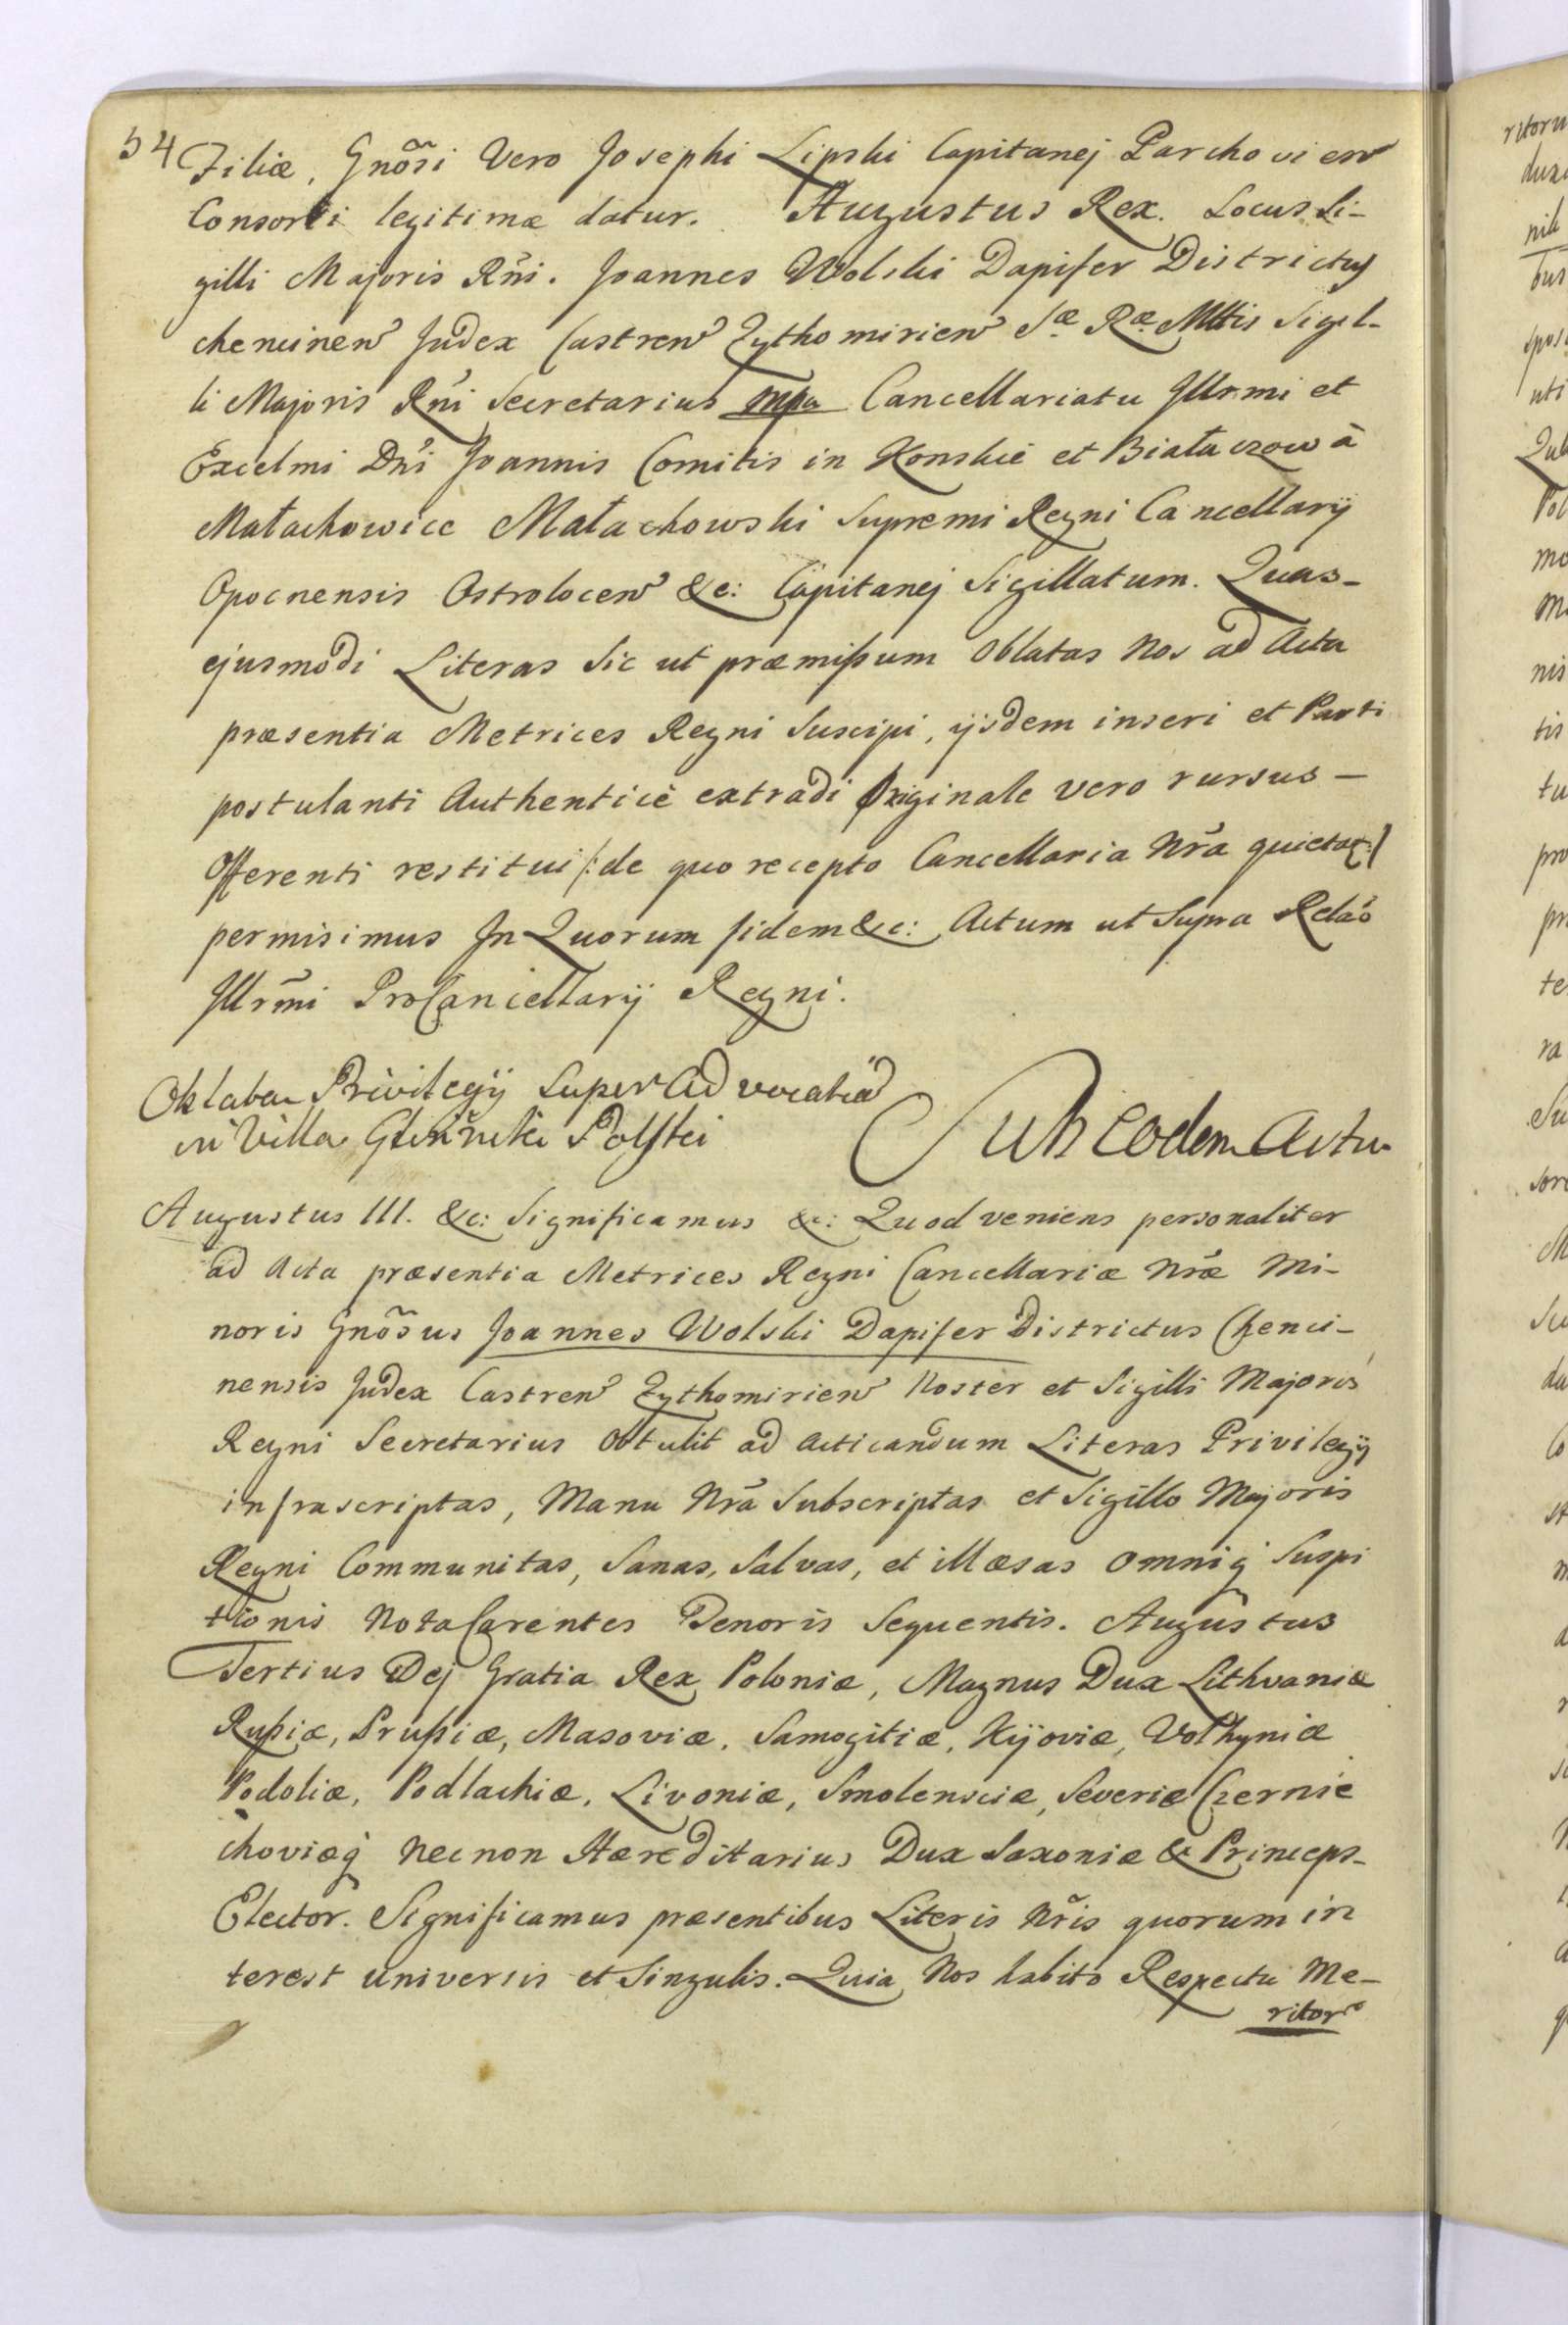 54 Filiæ, Gnõsi Vero Josephi Lipski Capitanej Parchovien
Consorti legitimæ datur. Augustus Rex. Locus Si-
gilli Majoris Rñi. Joannes Wolski Dapifer Districtus
chencinen Judex Castren Zythomirien Sæ Ræ Mttis Sigil-
li Majoris Rñi Secretarius mpa Cancellariatu Jllrmi et
Excelmi Dñi Joannis Comitis in Konskie et Białaczow à
Małachowice Małachowski Supremi Regni Cancellarÿ
Opocnensis Ostrolocen &c: Capitanej Sigillatum. Quas-
ejusmodi Literas Sic ut præmissum Oblatas Nos ad Acta
præsentia Metrices Regni Suscipi, ijsdem inseri et Parti
postulanti Authenticè extradi Originale vero rursus-
Offerenti restitui /:de quo recepto Cancellaria Nrã quietat:/
permisimus Jn Quorum fidem &c: Actum ut Supra Relaõ
Jllrmi ProCancellarÿ Regni.
Oblata Privilegÿ Super Advocatiã
in Villa Polski
Sub eodem Actu
Augustus III. &c: Significamus &c: Quod veniens personaliter
ad Acta præsentia Metrices Regni Cancellariæ Nræ Mi-
noris Gnõsus Joannes Wolski Dapifer Districtus Chenci-
nensis Judex Castren Zythomirien Noster et Sigilli Majoris
Regni Secretarius Obtulit ad acticandum Literas Privilegÿ
infrascriptas, Manu Nrã Subscriptas et Sigillo Majoris
Regni Communitas, Sanas, Salvas, et illæsas omniq Suspi
tionis Nota Carentes Tenoris Sequentis. Augustus
Tertius Dej Gratia Rex Poloniæ, Magnus Dux Lithvaniæ
Russiæ, Prussiæ, Masoviæ, Samogitiæ, Kijoviæ, Volhyniæ
Podoliæ, Podlachiæ, Livoniæ, Smolensciæ, Severiæ Czernie
choviæq necnon Hæreditarius Dux Saxoniæ & Princeps-
Elector. Significamus præsentibus Literis Nris quorum in
terest universis et Singulis. Quia Nos habito Respectu Me-
ritor